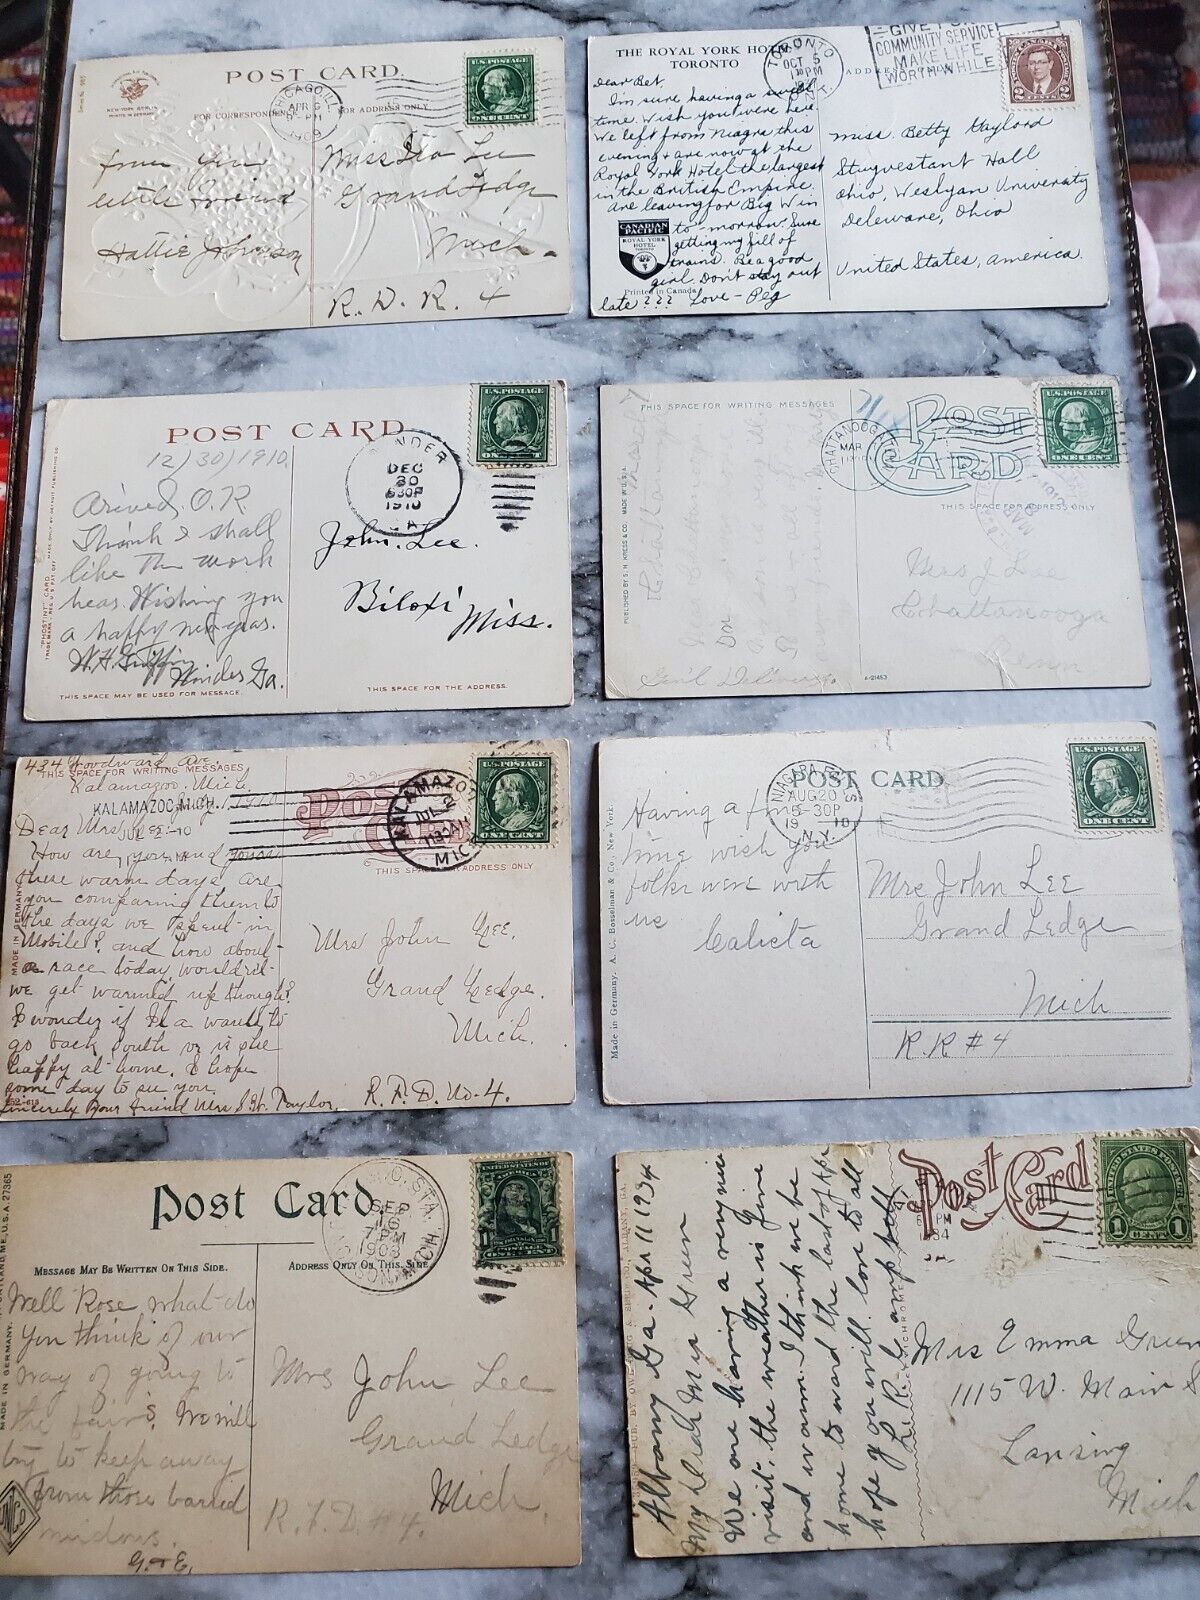 POST CARD
FOR CORRESPONDENCE
FOR ADDRESS ONLY
CHICAGO, ILL
APR 6
PM
1909
U.S. POSTAGE
ONE CENT
from your
little friend
Hattie Johnson
Miss Lee
Grand Ledge
Mich.
R. D. R. 4
THE ROYAL YORK HOTEL
TORONTO
TORONTO
OCT 5
PM
ONT.
GIVE FOR
COMMUNITY SERVICE
MAKE LIFE
WORTH WHILE
2 CENTS 2
Dear Bet,
I'm sure having a swell
time. Wish you were here.
We left from Niagra this
evening & are now at the
Royal York Hotel the largest
in the British Empire.
are leaving for Big Win
to-morrow. Sure
getting my fill of
trains. Be a good
girl. Don't stay out
late??? Love - Peg
CANADIAN
PACIFIC
ROYAL YORK
HOTEL
TORONTO
Printed in Canada
Miss. Betty Gaylord
Stuyvestant Hall
Ohio, Wesleyan University
Deleware, Ohio
United States, America.
POST CARD
12/30/1910
WINDER
DEC
30
630P
1910
GA.
U.S. POSTAGE
ONE CENT
Arived. O.K
Think I shall
like the work
hear. Wishing you
a happy new years.
W.H. Griffin
Winder Ga.
John. Lee.
Biloxi
Miss.
"PHOSTINT" CARD
THIS SPACE MAY BE USED FOR MESSAGE.
THIS SPACE FOR THE ADDRESS.
THIS SPACE FOR WRITING MESSAGES
POST
CARD
CHATTANOOGA
MAR
U.S. POSTAGE
ONE CENT
THIS SPACE FOR ADDRESS ONLY
PUBLISHED BY S. H. KRESS & CO. MADE IN U.S.A.
Mrs J Lee
Chattanooga
Tenn
Gen'l Delivery
A-21453
434 Woodward Ave.
THIS SPACE FOR WRITING MESSAGES
Kalamazoo, Mich
KALAMAZOO, MICH.
JUL 2 - 10
POST
CARD
KALAMAZOO
JUL 2
MICH
U.S. POSTAGE
ONE CENT
THIS SPACE FOR ADDRESS ONLY
Dear Mrs Lee:-
How are you and yours
these warm days are
you comparing them to
the days we spent in
Mobile? and how about
a race today, wouldn't
we get warmed up though?
I wonder if is a wanting to
go back south or is she
happy at home. I hope
some day to see you.
Sincerely Your friend Mrs S. W. Taylor.
MADE IN GERMANY
Mrs John Lee.
Grand Ledge.
Mich.
R. F. D. No. 4.
POST CARD
NIAGARA FALLS
AUG 20
5-30P
1910
N.Y.
U.S. POSTAGE
ONE CENT
Having a fine
time wish you
folks were with
us
Calista
Mrs John Lee
Grand Ledge
Mich
R.R #4
Made in Germany. A. C. Bosselman & Co., New York.
Post Card.
SEP
16
7 PM
1908
MICH.
MESSAGE MAY BE WRITTEN ON THIS SIDE.
ADDRESS ONLY ON THIS SIDE
Well Rose, what do
you think of our
way of going to
the fairs. We will
try to keep away
from those barred
windows.
G. & E.
Mrs John Lee
Grand Ledge
Mich.
R. F. D. #4.
MADE IN GERMANY.
PORTLAND, ME., U.S.A. 27365
Post Card
UNITED STATES POSTAGE
1 CENT 1
Albany Ga. Apr 11 1934
My Dear Mrs Green
We are having a very nice
visit, the weather is fine
and warm. I think we be
home to ward the last of Apr
hope you will. love to all
Mrs Emma Green
1115 W. Main S
Lansing
Mich